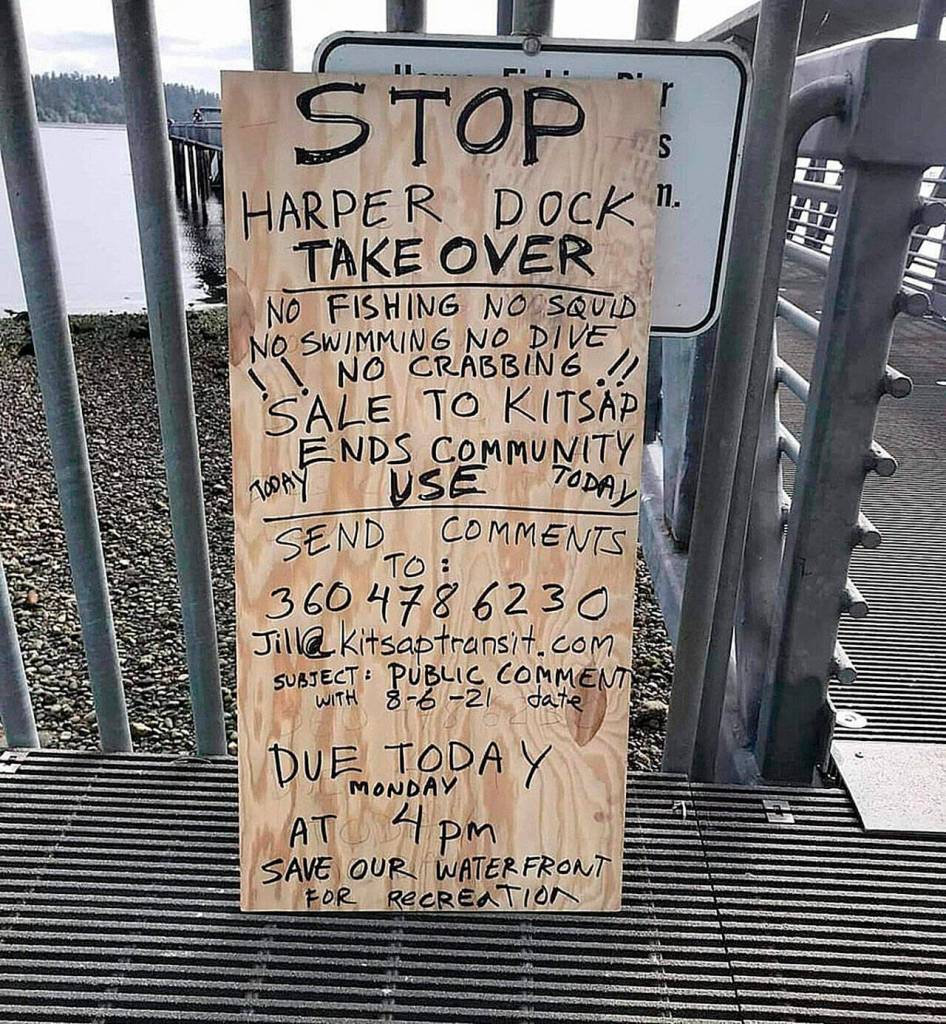 STOP
HARPER DOCK
TAKE OVER
NO FISHING NO SQUID
NO SWIMMING NO DIVE
!! NO CRABBING !!
SALE TO KITSAP
ENDS COMMUNITY
TODAY USE TODAY
SEND COMMENTS
TO:
360 478 6230
Jill@kitsaptransit.com
SUBJECT: PUBLIC COMMENT
WITH 8-6-21 date
DUE TODAY
MONDAY
AT 4 pm
SAVE OUR WATERFRONT
FOR RECREATION